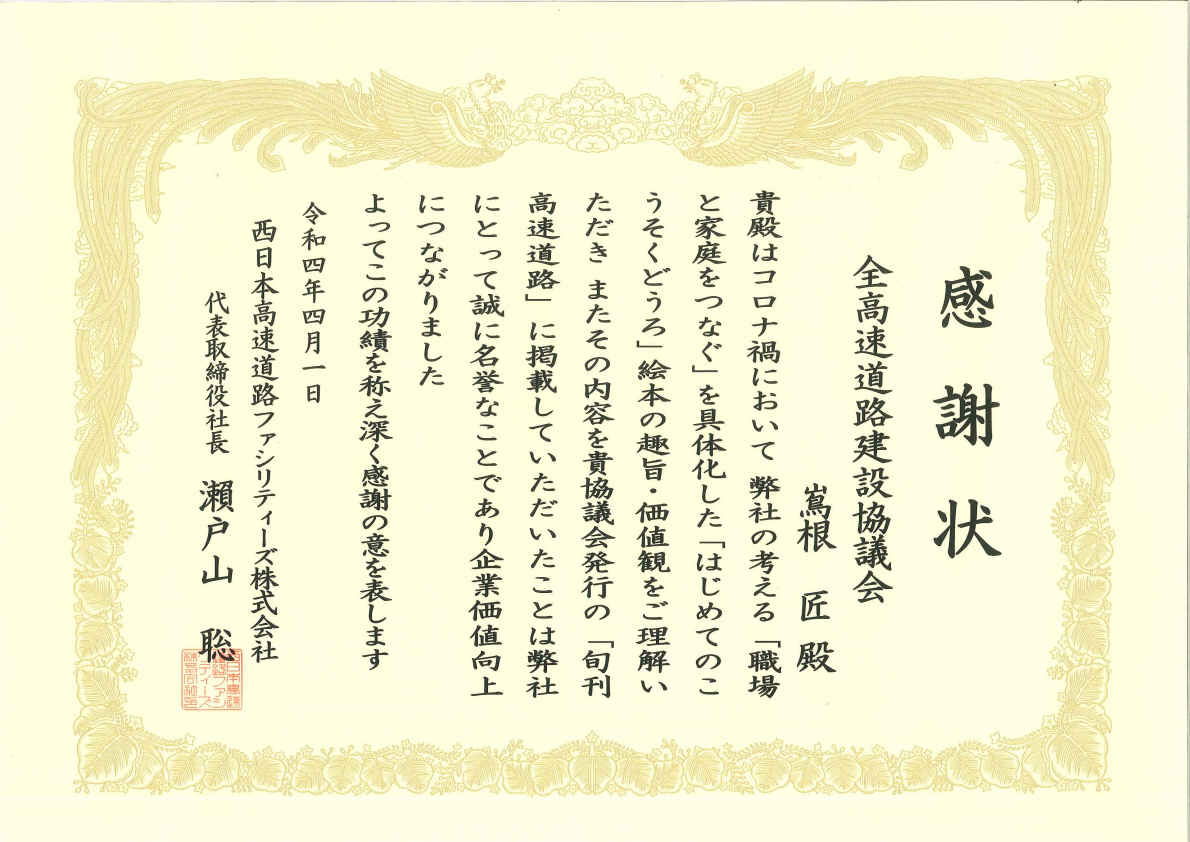 感謝状
全高速道路建設協議会
嶌根 匠 殿
貴殿はコロナ禍において 弊社の考える「職場
と家庭をつなぐ」を具体化した「はじめてのこ
うそくどうろ」絵本の趣旨・価値観をご理解い
ただき またその内容を貴協議会発行の「旬刊
高速道路」に掲載していただいたことは弊社
にとって誠に名誉なことであり企業価値向上
につながりました
よってこの功績を称え深く感謝の意を表します
令和四年四月一日
西日本高速道路ファシリティーズ株式会社
代表取締役社長 瀬戸山 聡